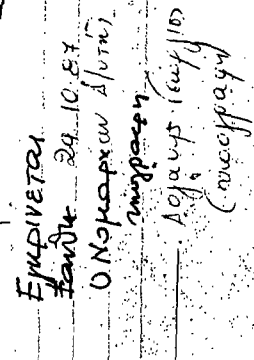 Εγκρίνεται
Ξάνθη 29.10.87
Ο Νομάρχων Δ/ντής
υπογραφή
(υπογραφή)